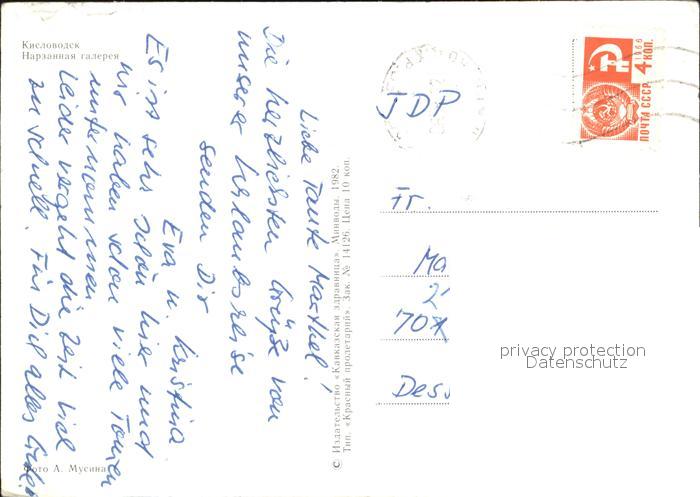 Кисловодск
Нарзанная галерея
Liebe Tante Marthel!
Die herzlichsten Grüße von
unserer Urlaubsreise
senden Dir
Eva u. Kristina
Es ist sehr schön hier und
wir haben schon viele Touren
unternommen
Leider vergeht die Zeit viel
zu schnell. Für Dich alles Gute
Фото А. Мусина
© Издательство «Кавказская здравница». Минводы. 1982.
Тип. «Красный пролетарий». Зак. № 14126. Цена 10 коп.
1966
4 КОП.
ПОЧТА СССР
JDP
Fr.
Ma
2
70
Dess
privacy protection
Datenschutz